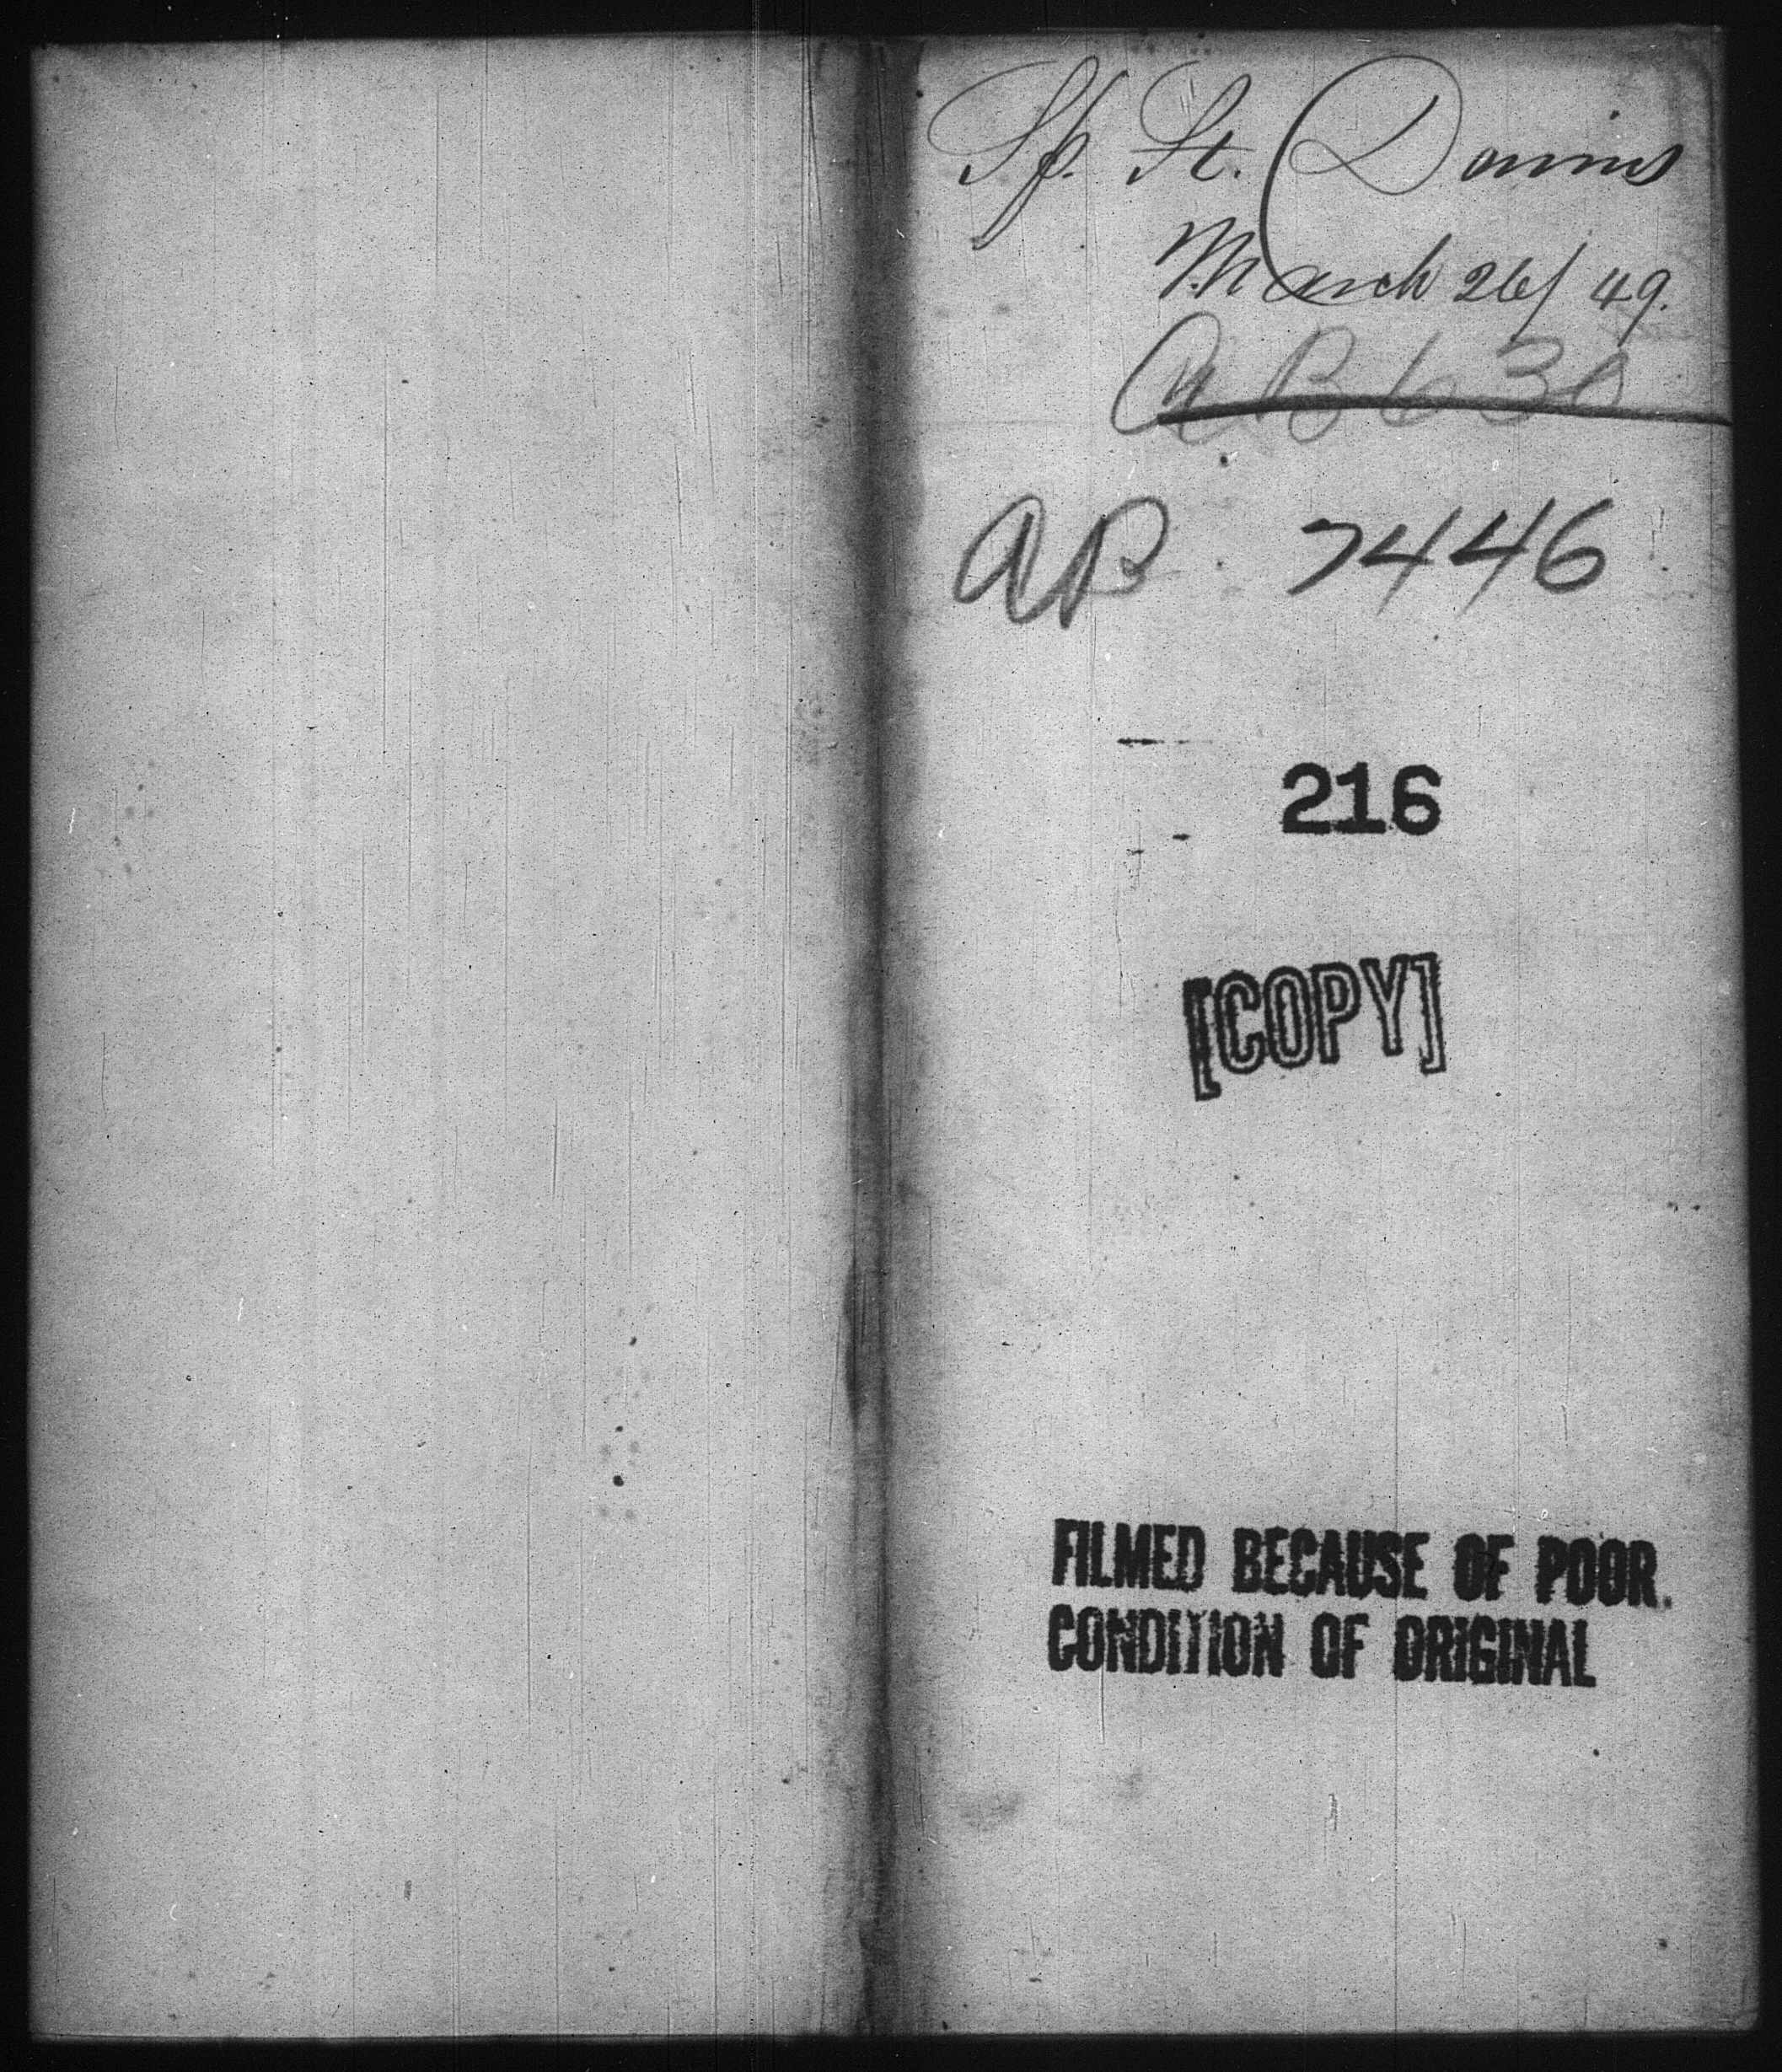 Sp. St. Domin
March 26/49.
AB 630
AB 7446
216
[COPY]
FILMED BECAUSE OF POOR.
CONDITION OF ORIGINAL